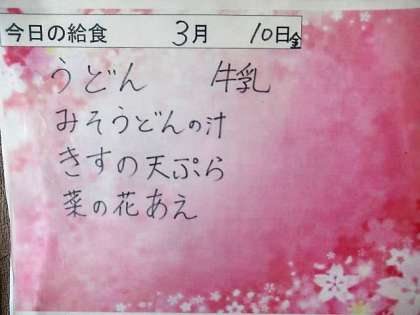 今日の給食 3月 10日金
うどん 牛乳
みそうどんの汁
きすの天ぷら
菜の花あえ